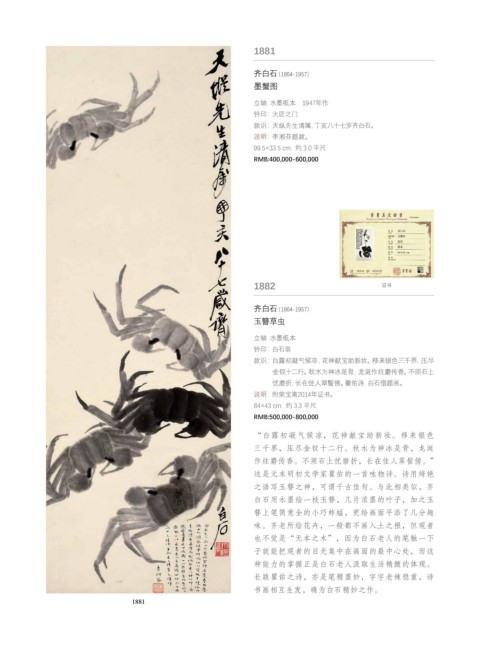 天縱先生清屬丁亥八十七歲齊
白石
1881
1881
齐白石 (1864-1957)
墨蟹图
立轴 水墨纸本 1947年作
钤印：大匠之门
款识：天纵先生清属，丁亥八十七岁齐白石。
说明：李湘芬题跋。
99.5×33.5 cm 约 3.0 平尺
RMB:400,000-600,000
证书
1882
齐白石 (1864-1957)
玉簪草虫
立轴 水墨纸本
钤印：白石翁
款识：白露初凝气候凉，花神献宝助新妆。移来银色三千界，压尽
金钗十二行。秋水为神冰是骨，龙涎作炷麝传香。不须石上
忧磨折，长在佳人翠鬓傍。
说明：附荣宝斋2014年证书。
84×43 cm 约 3.3 平尺
RMB:500,000-800,000
“白露初凝气候凉，花神献宝助新妆。移来银色
三千界，压尽金钗十二行。秋水为神冰是骨，龙涎
作炷麝传香。不须石上忧磨折，长在佳人翠鬓傍。”
这是元末明初文学家瞿佑的一首咏物诗。诗用绮艳
之语写玉簪之神，可谓千古佳句。与此相类似，齐
白石用水墨绘一枝玉簪，几片浓墨的叶子，加之玉
簪上笔简意全的小巧蚱蜢，更给画面平添了几分趣
味。齐老所绘花卉，一般都不画入土之根，但观者
也不觉是“无本之木”，因为白石老人的笔触一下
子就能把观者的目光集中在画面的最中心处，而这
种能力的掌握正是白石老人汲取生活精髓的体现。
长跋瞿佑之诗，亦是笔精墨妙，字字老辣稳重，诗
书画相互生发，确为白石精妙之作。